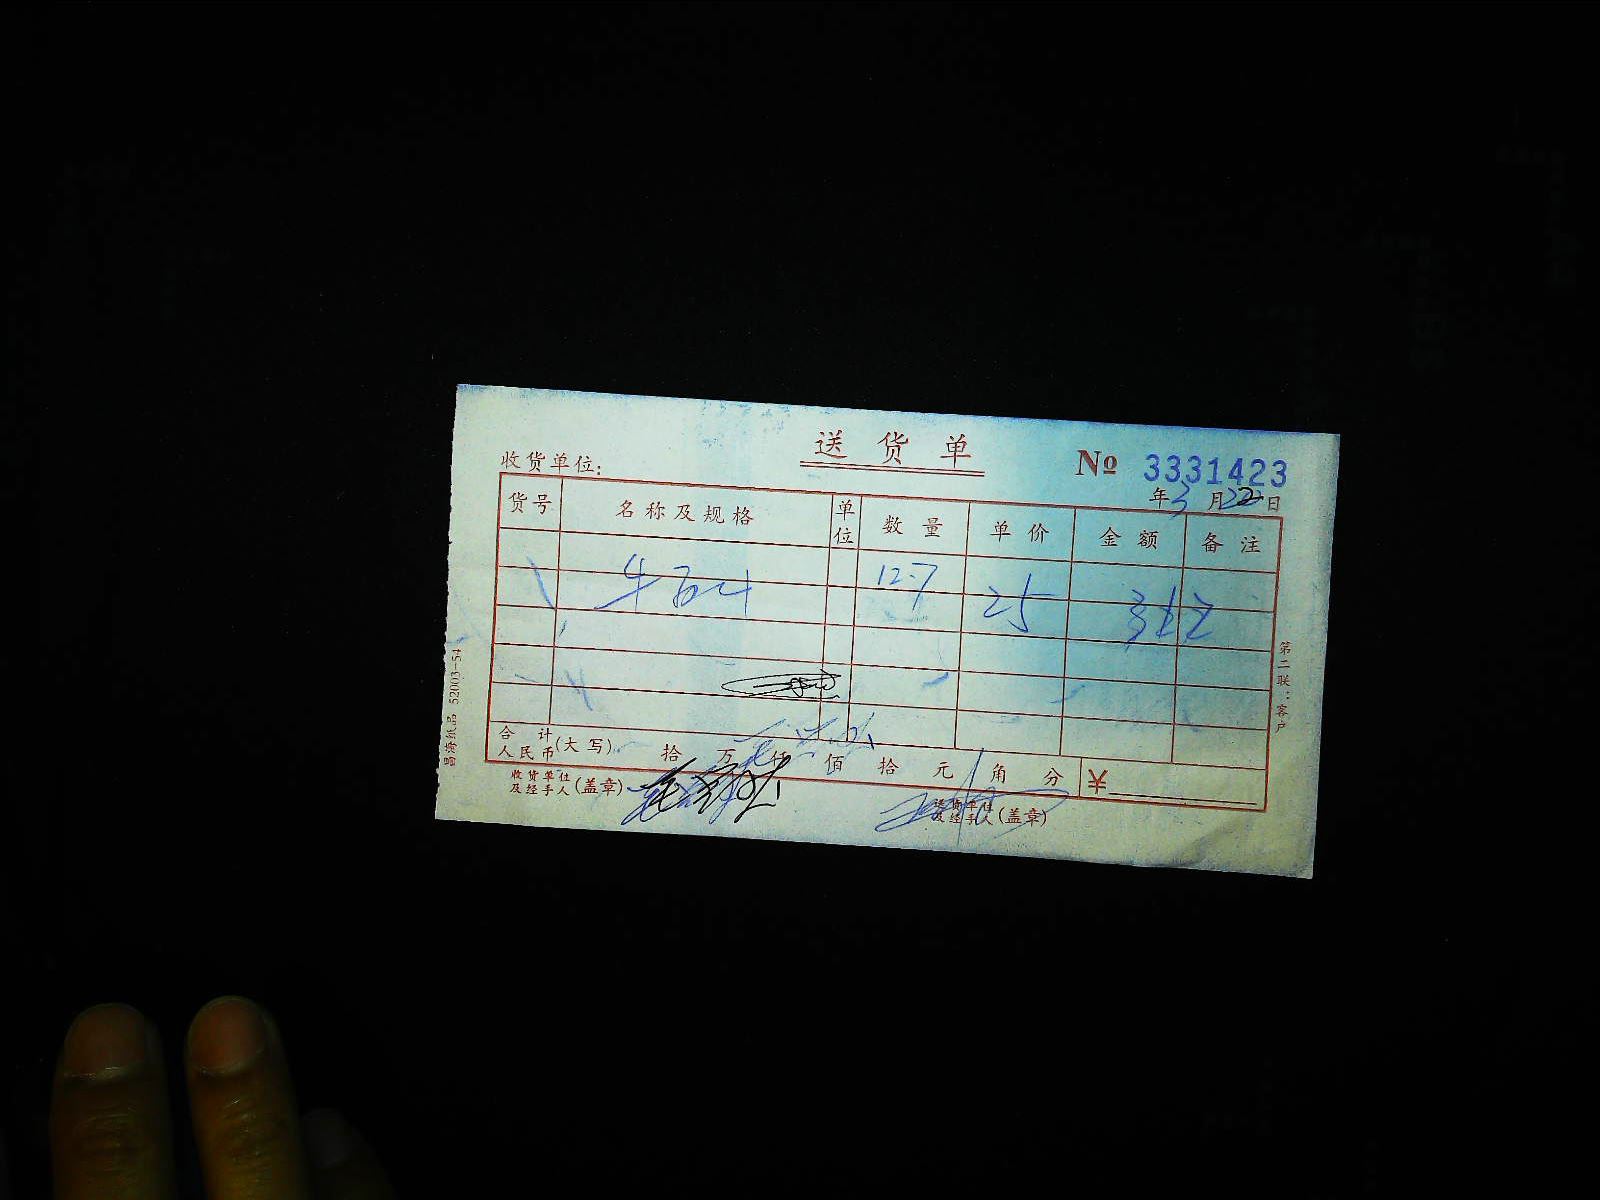 送货单
No 3331423
收货单位:
年3月22日
货号 名称及规格 单位 数量 单价 金额 备注
12.7 25
合计
人民币(大写) 拾 万 仟 佰 拾 元 角 分 ¥
收货单位
及经手人(盖章)
送货单位
及经手人(盖章)
第二联:客户
52003-54